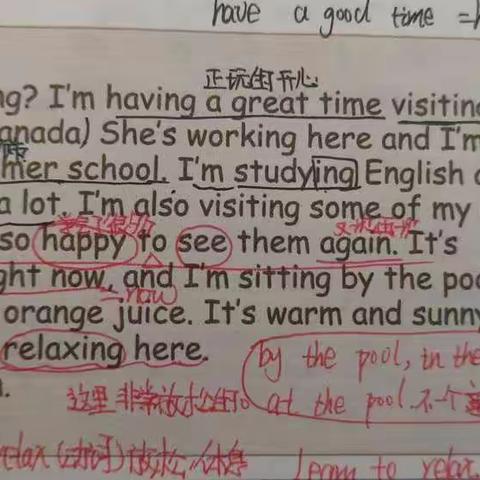 have a good time =
正玩的开心
ng? I'm having a great time visiting
anada) She's working here and I'm
mer school. I'm studying English a
a lot. I'm also visiting some of my
so happy to see them again. It's
ght now, and I'm sitting by the poo
= now
orange juice. It's warm and sunny
relaxing here.
by the pool, in the
这里非常放松的。 at the pool. 不一个
relax (动词) 放松/休息 learn to relax